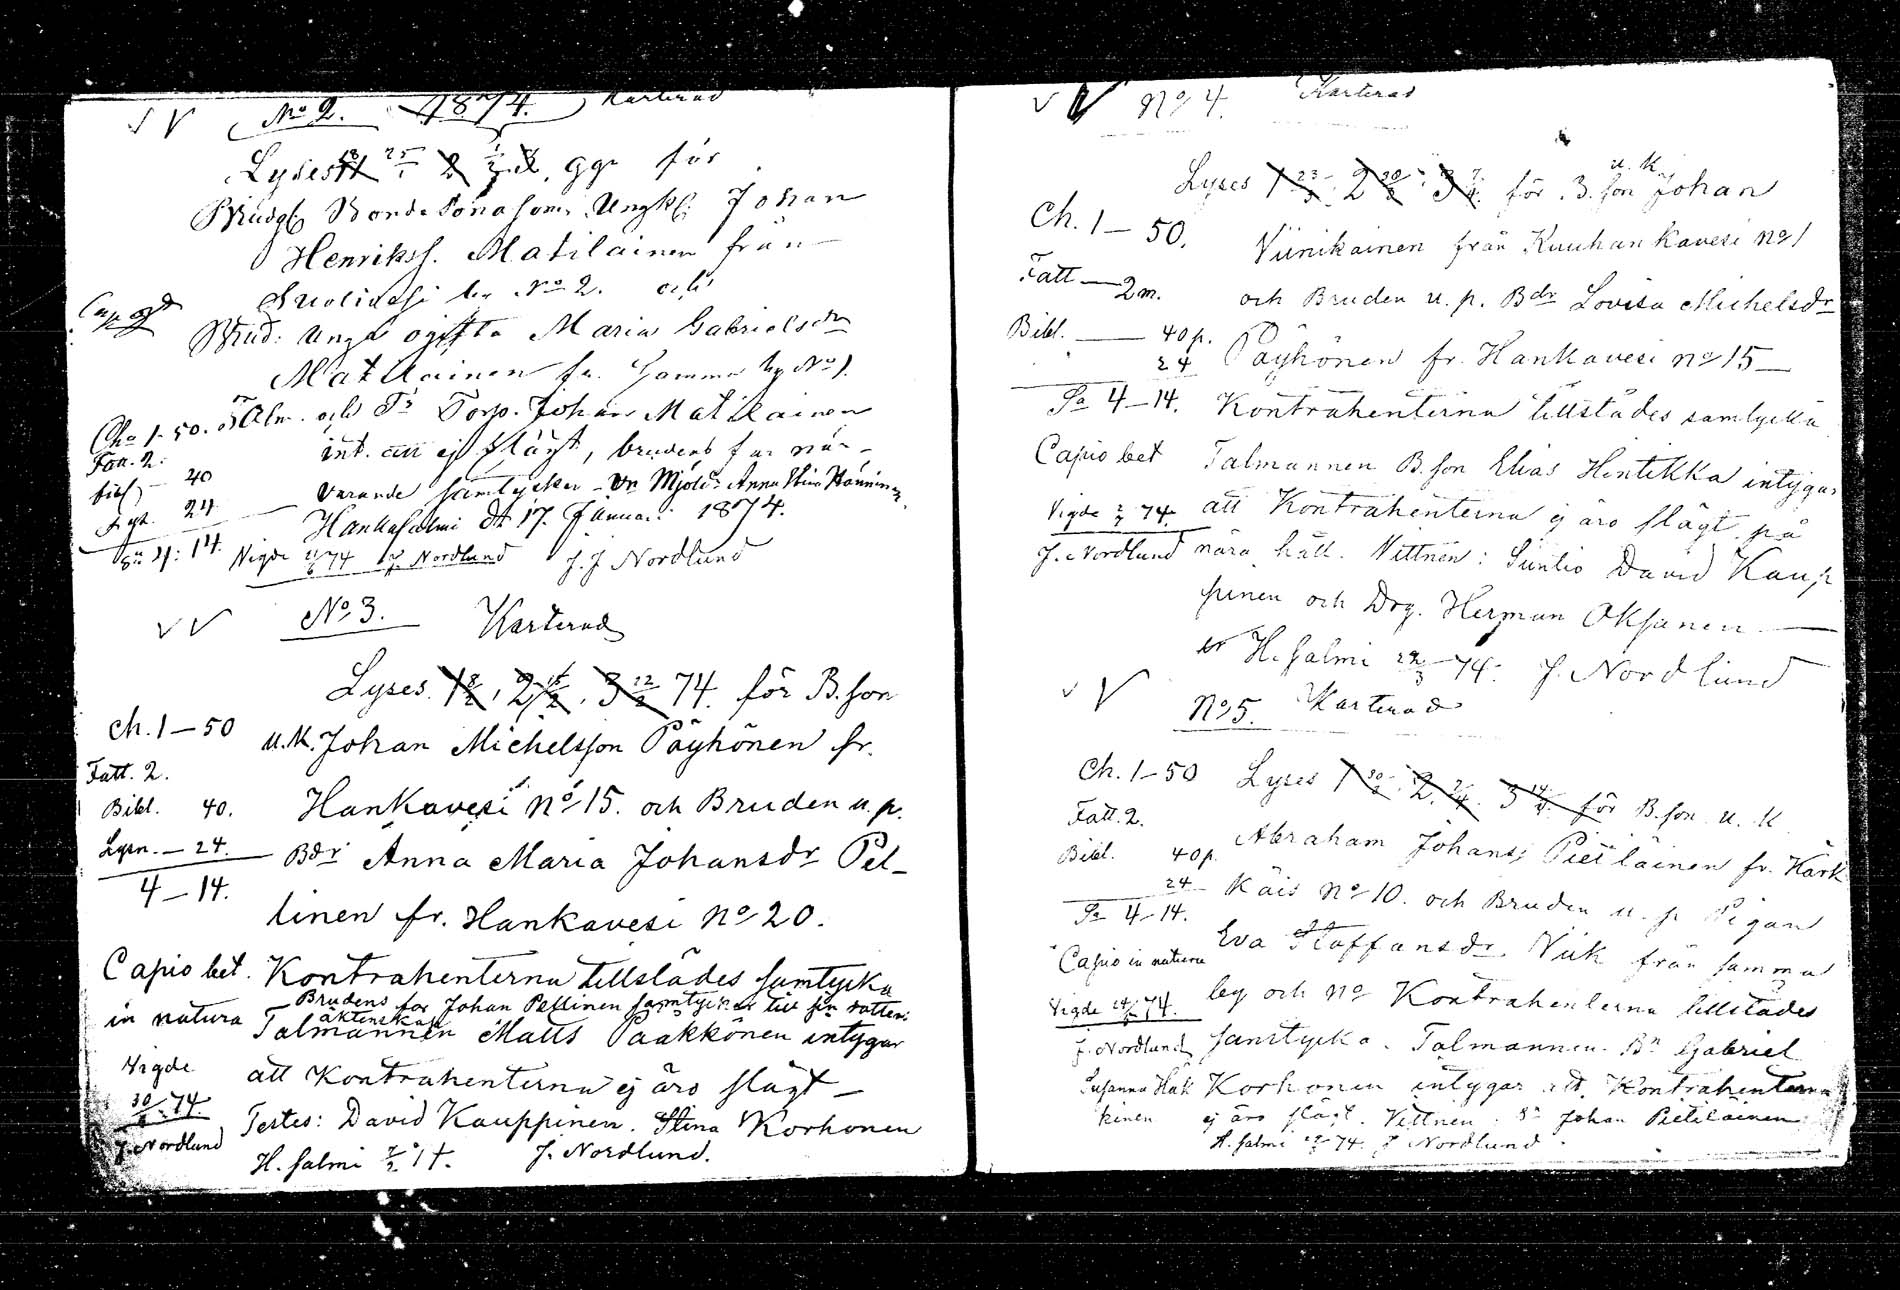 No 2. 1874. Karterad
Lyses 18/1 25/1 2 1/2 ggr för
Brudg. Bonde Sonasonen Ungkl: Johan
Henrikss. Matilainen från
by No 2. och
Brud: unga ogifta Maria Gabrielsdr
Matilainen fr. Gamma by No 1.
Talm. och Torp. Johan Matilainen
int. att ej slägt, brudens far när-
varande samtycker Anna Stina Hänninen
Hankasalmi dt 17. Januari 1874.
Vigde 74 J. Nordlund J. J Nordlund
Cho 1-50.
Fatt. 2.
40
24
Sa 4: 14.
No 3. Karterad
Lyses 1 8/2, 2 15/2, 3 22/2 74. för B.son
u.k. Johan Michelsson Päyhönen fr.
Hankavesi No 15. och Bruden u.p.
Bdr Anna Maria Johansdr Pel-
linen fr. Hankavesi No 20.
Kontrahenterna tillstädes samtycka
Brudens far Johan Pellinen samtycker till sin dotters
äktenskap
Talmannen Matts Paakkönen intygar
att Kontrahenterna ej äro slägt –
Testes: David Kauppinen. Stina Korhonen
H. salmi 7/2 74. J. Nordlund.
Ch. 1–50
Fatt. 2.
Bibl. 40.
Lysn. – 24.
4–14.
Capio bet.
in natura
Vigde
30/ 74.
J. Nordlund
No 4. Karterad
Lyses 1 23/3 2 30/3 3 7/4 för B.son u.k. Johan
Viinikainen från Kuuhankavesi No 1
och Bruden u.p. Bdr Lovisa Michelsdr
Päyhönen fr. Hankavesi No 15 –
Kontrahenterna tillstädes samtycka
Talmannen B.son Elias Hintikka intygar
att Kontrahenterna ej äro slägt på
nära håll. Vittnen: Suntio David Kaup
pinen och Drg. Herman Oksanen –
H. salmi 22/3 74. J. Nordlund
Ch. 1–50.
Fatt – 2 m.
Bibl. – 40 p.
24
Sa 4–14.
Capio bet
Vigde 74.
J. Nordlund
No 5. Karterad
Lyses 1 30/3 2. 3 för B.son u.k
Abraham Johans: Pietiläinen fr. Kärk
käis No 10. och Bruden u.p Pigan
Eva Staffansdr Niik från samma
by och No Kontrahenterna tillstädes
samtycka. Talmannen Bn Gabriel
Korhonen intygar att Kontrahenterna
ej äro slägt. Vittnen: Johan Pietiläinen
H. salmi 74. J Nordlund
Ch. 1–50
Fatt. 2.
Bibl. 40 p.
24
Sa 4–14.
Capio in natura
Vigde 74.
J. Nordlund
Susanna Häk
kinen